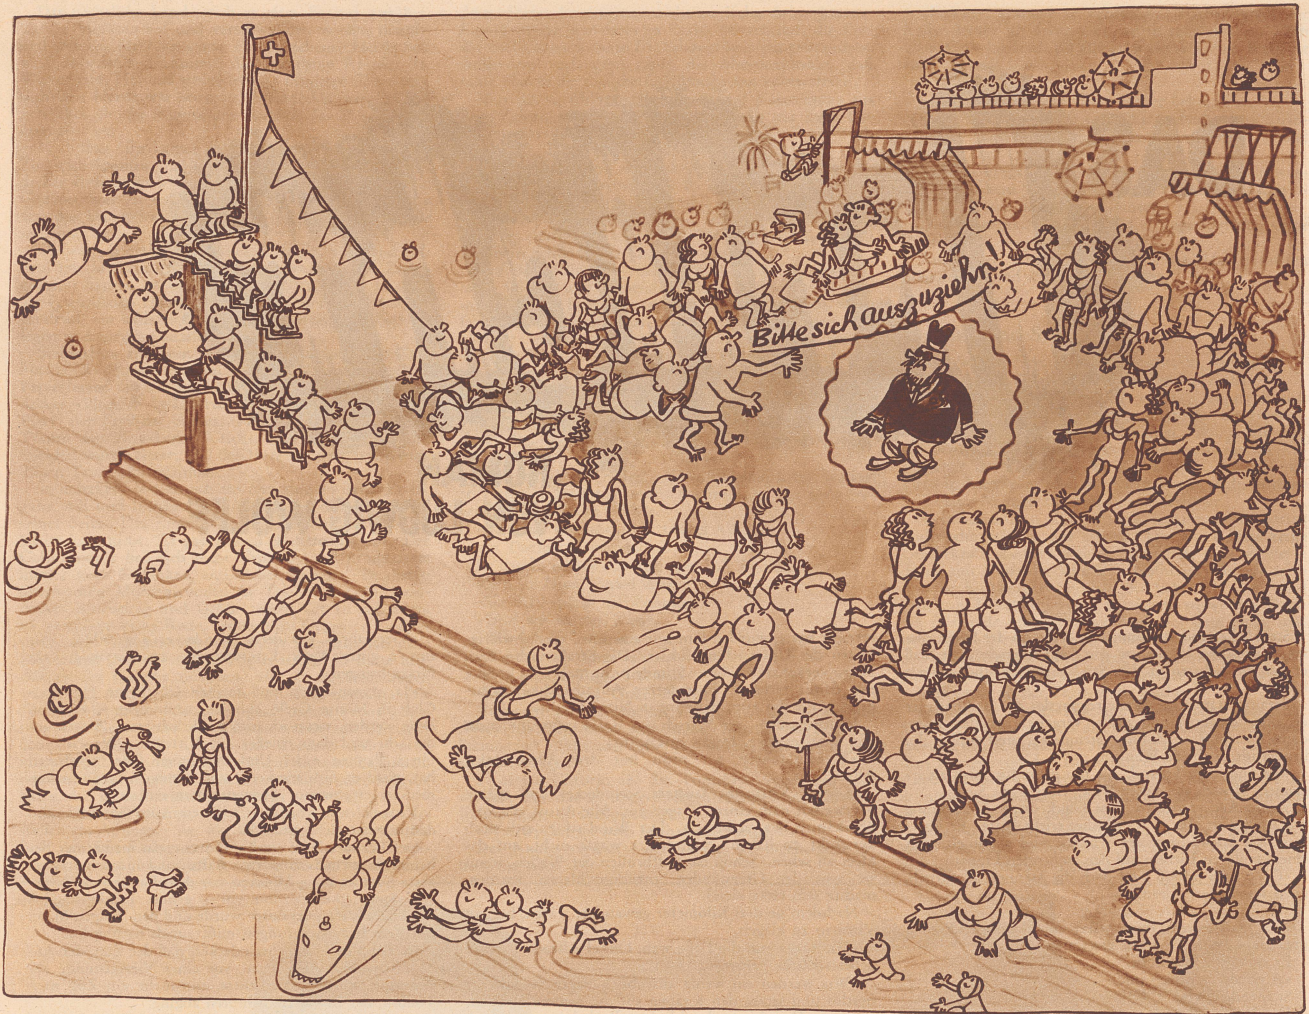 Bitte sich auszuziehn!